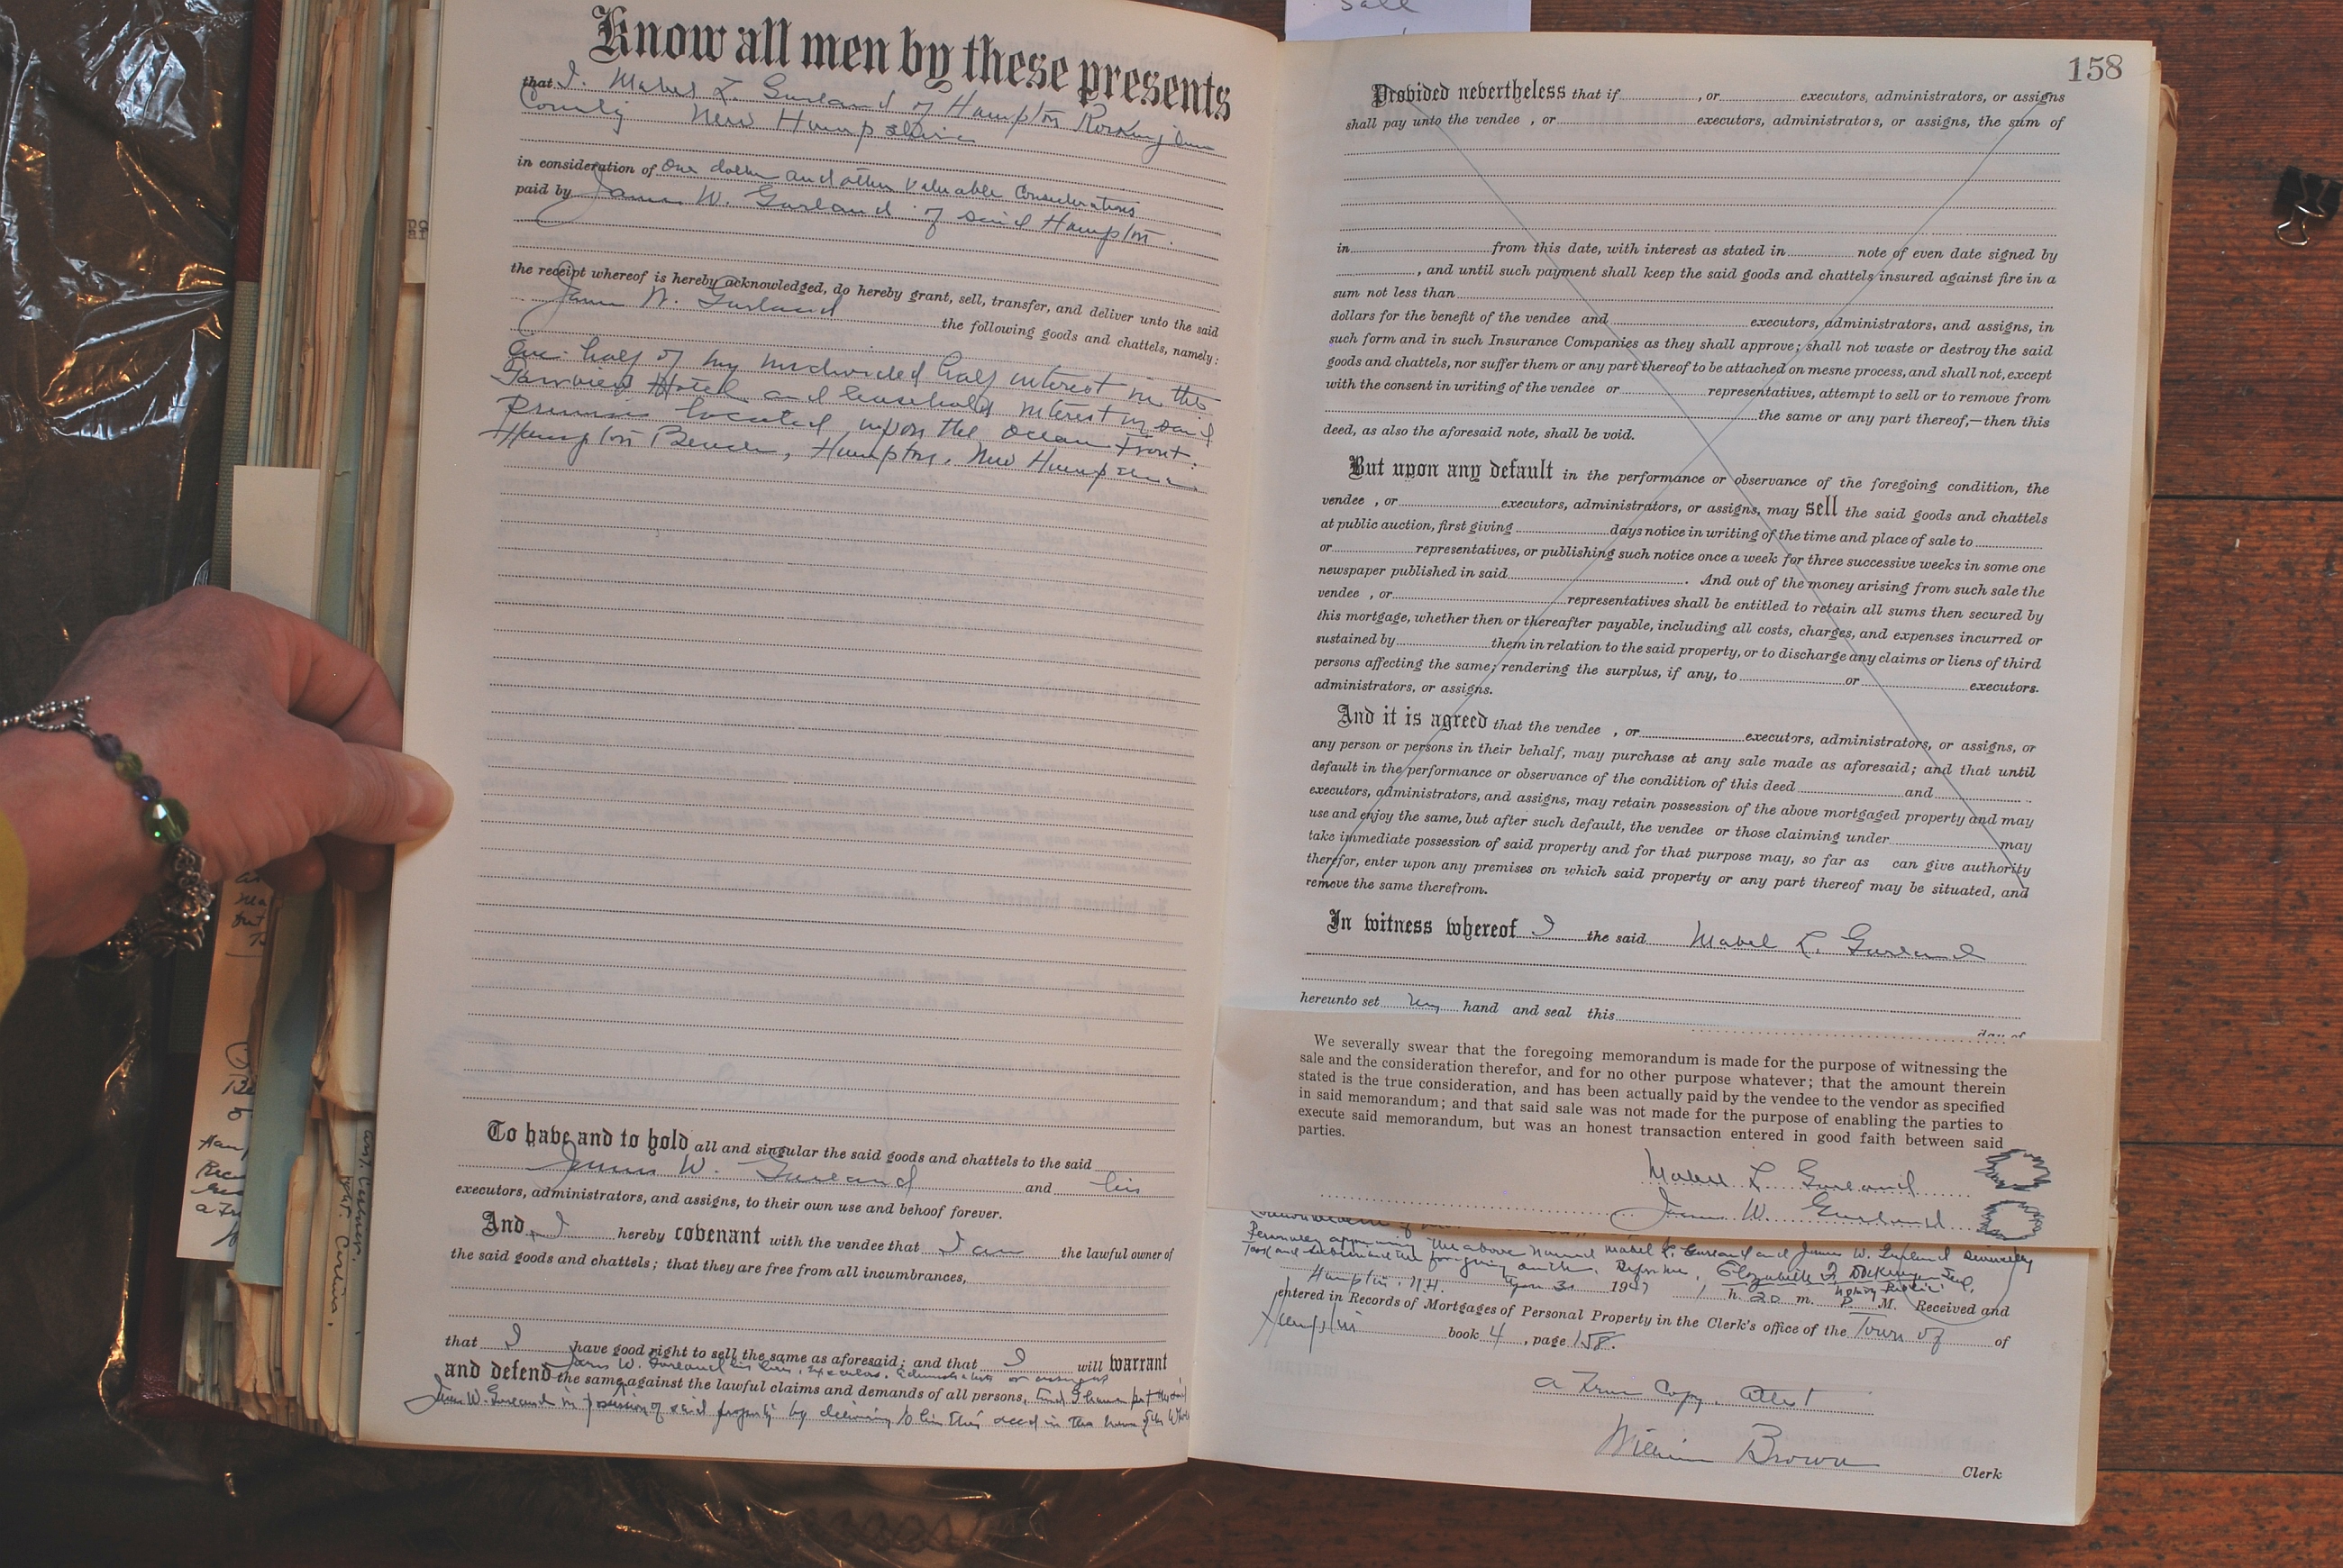 Know all men by these presents
that I. Mabel L. Garland of Hampton Rockingham
County New Hampshire
in consideration of One dollar and other valuable Considerations
paid by James W. Garland of said Hampton.
the receipt whereof is hereby acknowledged, do hereby grant, sell, transfer, and deliver unto the said
James W. Garland the following goods and chattels, namely:
One half of my undivided half interest in the
Fairview Hotel and leasehold interest in said
Premises located upon the Ocean Front.
Hampton Beach, Hampton, New Hampshire.
To have and to hold all and singular the said goods and chattels to the said
James W. Garland and his
executors, administrators, and assigns, to their own use and behoof forever.
And I hereby covenant with the vendee that I am the lawful owner of
the said goods and chattels; that they are free from all incumbrances,
that I have good right to sell the same as aforesaid; and that I will warrant
James W. Garland his heirs, Executors, Administrators or assigns
and defend the same against the lawful claims and demands of all persons, and I have put the said
James W. Garland in possession of said property by delivering to him this deed in the name of the Whole
Sale
158
Provided nevertheless that if , or executors, administrators, or assigns
shall pay unto the vendee , or executors, administrators, or assigns, the sum of
in from this date, with interest as stated in note of even date signed by
, and until such payment shall keep the said goods and chattels insured against fire in a
sum not less than
dollars for the benefit of the vendee and executors, administrators, and assigns, in
such form and in such Insurance Companies as they shall approve; shall not waste or destroy the said
goods and chattels, nor suffer them or any part thereof to be attached on mesne process, and shall not, except
with the consent in writing of the vendee or representatives, attempt to sell or to remove from
the same or any part thereof,—then this
deed, as also the aforesaid note, shall be void.
But upon any default in the performance or observance of the foregoing condition, the
vendee , or executors, administrators, or assigns, may sell the said goods and chattels
at public auction, first giving days notice in writing of the time and place of sale to
or representatives, or publishing such notice once a week for three successive weeks in some one
newspaper published in said . And out of the money arising from such sale the
vendee , or representatives shall be entitled to retain all sums then secured by
this mortgage, whether then or thereafter payable, including all costs, charges, and expenses incurred or
sustained by them in relation to the said property, or to discharge any claims or liens of third
persons affecting the same; rendering the surplus, if any, to or executors.
administrators, or assigns.
And it is agreed that the vendee , or executors, administrators, or assigns, or
any person or persons in their behalf, may purchase at any sale made as aforesaid; and that until
default in the performance or observance of the condition of this deed and
executors, administrators, and assigns, may retain possession of the above mortgaged property and may
use and enjoy the same, but after such default, the vendee or those claiming under may
take immediate possession of said property and for that purpose may, so far as can give authority
therefor, enter upon any premises on which said property or any part thereof may be situated, and
remove the same therefrom.
In witness whereof I the said Mabel L. Garland
hereunto set my hand and seal this
day of
We severally swear that the foregoing memorandum is made for the purpose of witnessing the
sale and the consideration therefor, and for no other purpose whatever; that the amount therein
stated is the true consideration, and has been actually paid by the vendee to the vendor as specified
in said memorandum; and that said sale was not made for the purpose of enabling the parties to
execute said memorandum, but was an honest transaction entered in good faith between said
parties.
Mabel L. Garland
James W. Garland
Personally appearing the above named Mabel L. Garland and James W. Garland Severally
took and subscribed the foregoing oath. Before me,
Notary Public
Hampton, N.H. 31 1947 1 h. 20 m. P M. Received and
entered in Records of Mortgages of Personal Property in the Clerk's office of the Town of of
Hampton book 4 , page 158.
A True Copy. Attest
William Brown Clerk